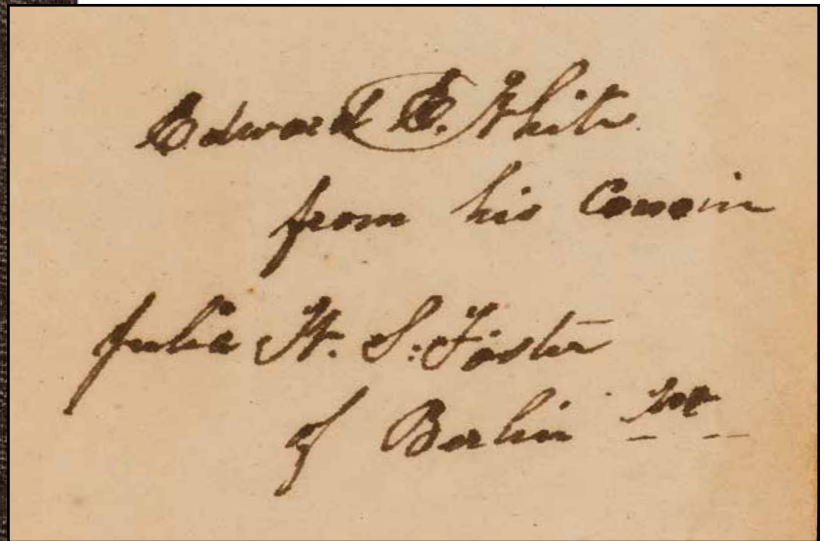 Edward E. White
from his Cousin
Julia W. S. Foster
of Berlin Vt